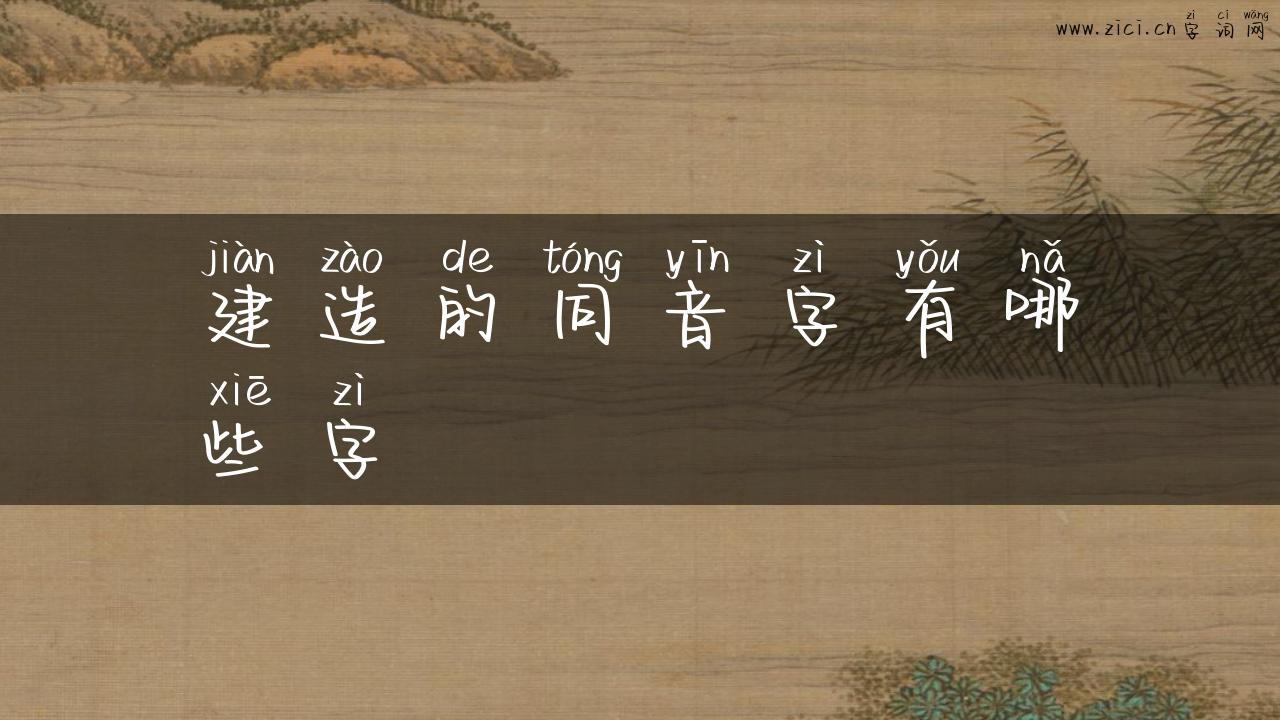 zì cí wǎng
www.zici.cn字词网
jiàn zào de tóng yīn zì yǒu nǎ
建造的同音字有哪
xiē zì
些字